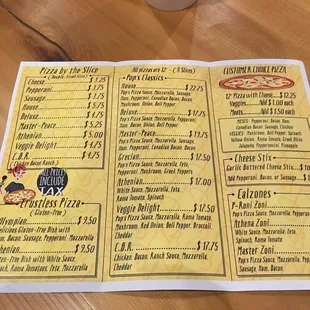 Pizza by the Slice
(Double-Sized Slice)
Cheese $3.25
Pepperoni $3.75
Sausage $3.75
House $5.75
Deluxe $4.75
Master-Peace $5.25
Athenian $5.00
Veggie Delight $4.75
C.B.R. $4.75
(Chicken Bacon Ranch)
ALL PRICES
INCLUDE
TAX
Crustless Pizza
(Gluten-Free)
Olympian $9.50
Delicious Gluten-Free Dish with
Bacon, Sausage, Pepperoni, Mozzarella
Athenian $9.50
Gluten-Free Dish with White Sauce,
Spinach, Roma Tomatoes, Feta, Mozzarella
All pizzas are 12" (8 Slices)
Pop's Classics
House $22.75
Pop's Pizza Sauce, Mozzarella, Sausage,
Ham, Pepperoni, Canadian Bacon, Bacon,
Mushroom, Onion, Bell Pepper
Deluxe $17.75
Pop's Pizza Sauce, Mozzarella, Pepperoni,
Onion, Bell Pepper
Master-Peace $19.75
Pop's Pizza Sauce, Mozzarella,
Pepperoni
Grecian $17.50
Pop's Pizza Sauce, Mozzarella, Pepperoni
Mushroom, Greek Peppers
Athenian $17.00
White Sauce, Mozzarella, Feta,
Roma Tomato, Spinach
Veggie Delight $17.50
Pop's Pizza Sauce, Mozzarella, Roma Tomato,
Mushroom, Red Onion, Bell Pepper, Broccoli,
Cheddar
C.B.R. $17.75
Chicken, Bacon, Ranch Sauce, Mozzarella,
Cheddar
CUSTOMER CHOICE PIZZA
12" Pizza with Cheese $12.25
Veggies Add $1.00 each
Meats Add $1.50 each
MEATS: Pepperoni, Bacon, Ham,
Canadian Bacon, Sausage, Chicken
VEGGIES: Mushroom, Bell Pepper, Onion,
Spinach, Roma Tomato, Greek Olive
Jalapeno, Pepperoncini, Pineapple
Cheese Stix
Garlic Buttered Cheese Stix
Add Pepperoni, Bacon, or Sausage
Calzones
P-Roni Zoni
Pop's Pizza Sauce, Mozzarella, Pepperoni
Athena Zoni
White Sauce, Mozzarella, Feta,
Spinach, Roma Tomato
Master Zoni
Pop's Pizza Sauce, Mozzarella, Pepperoni,
Sausage, Ham, Bacon